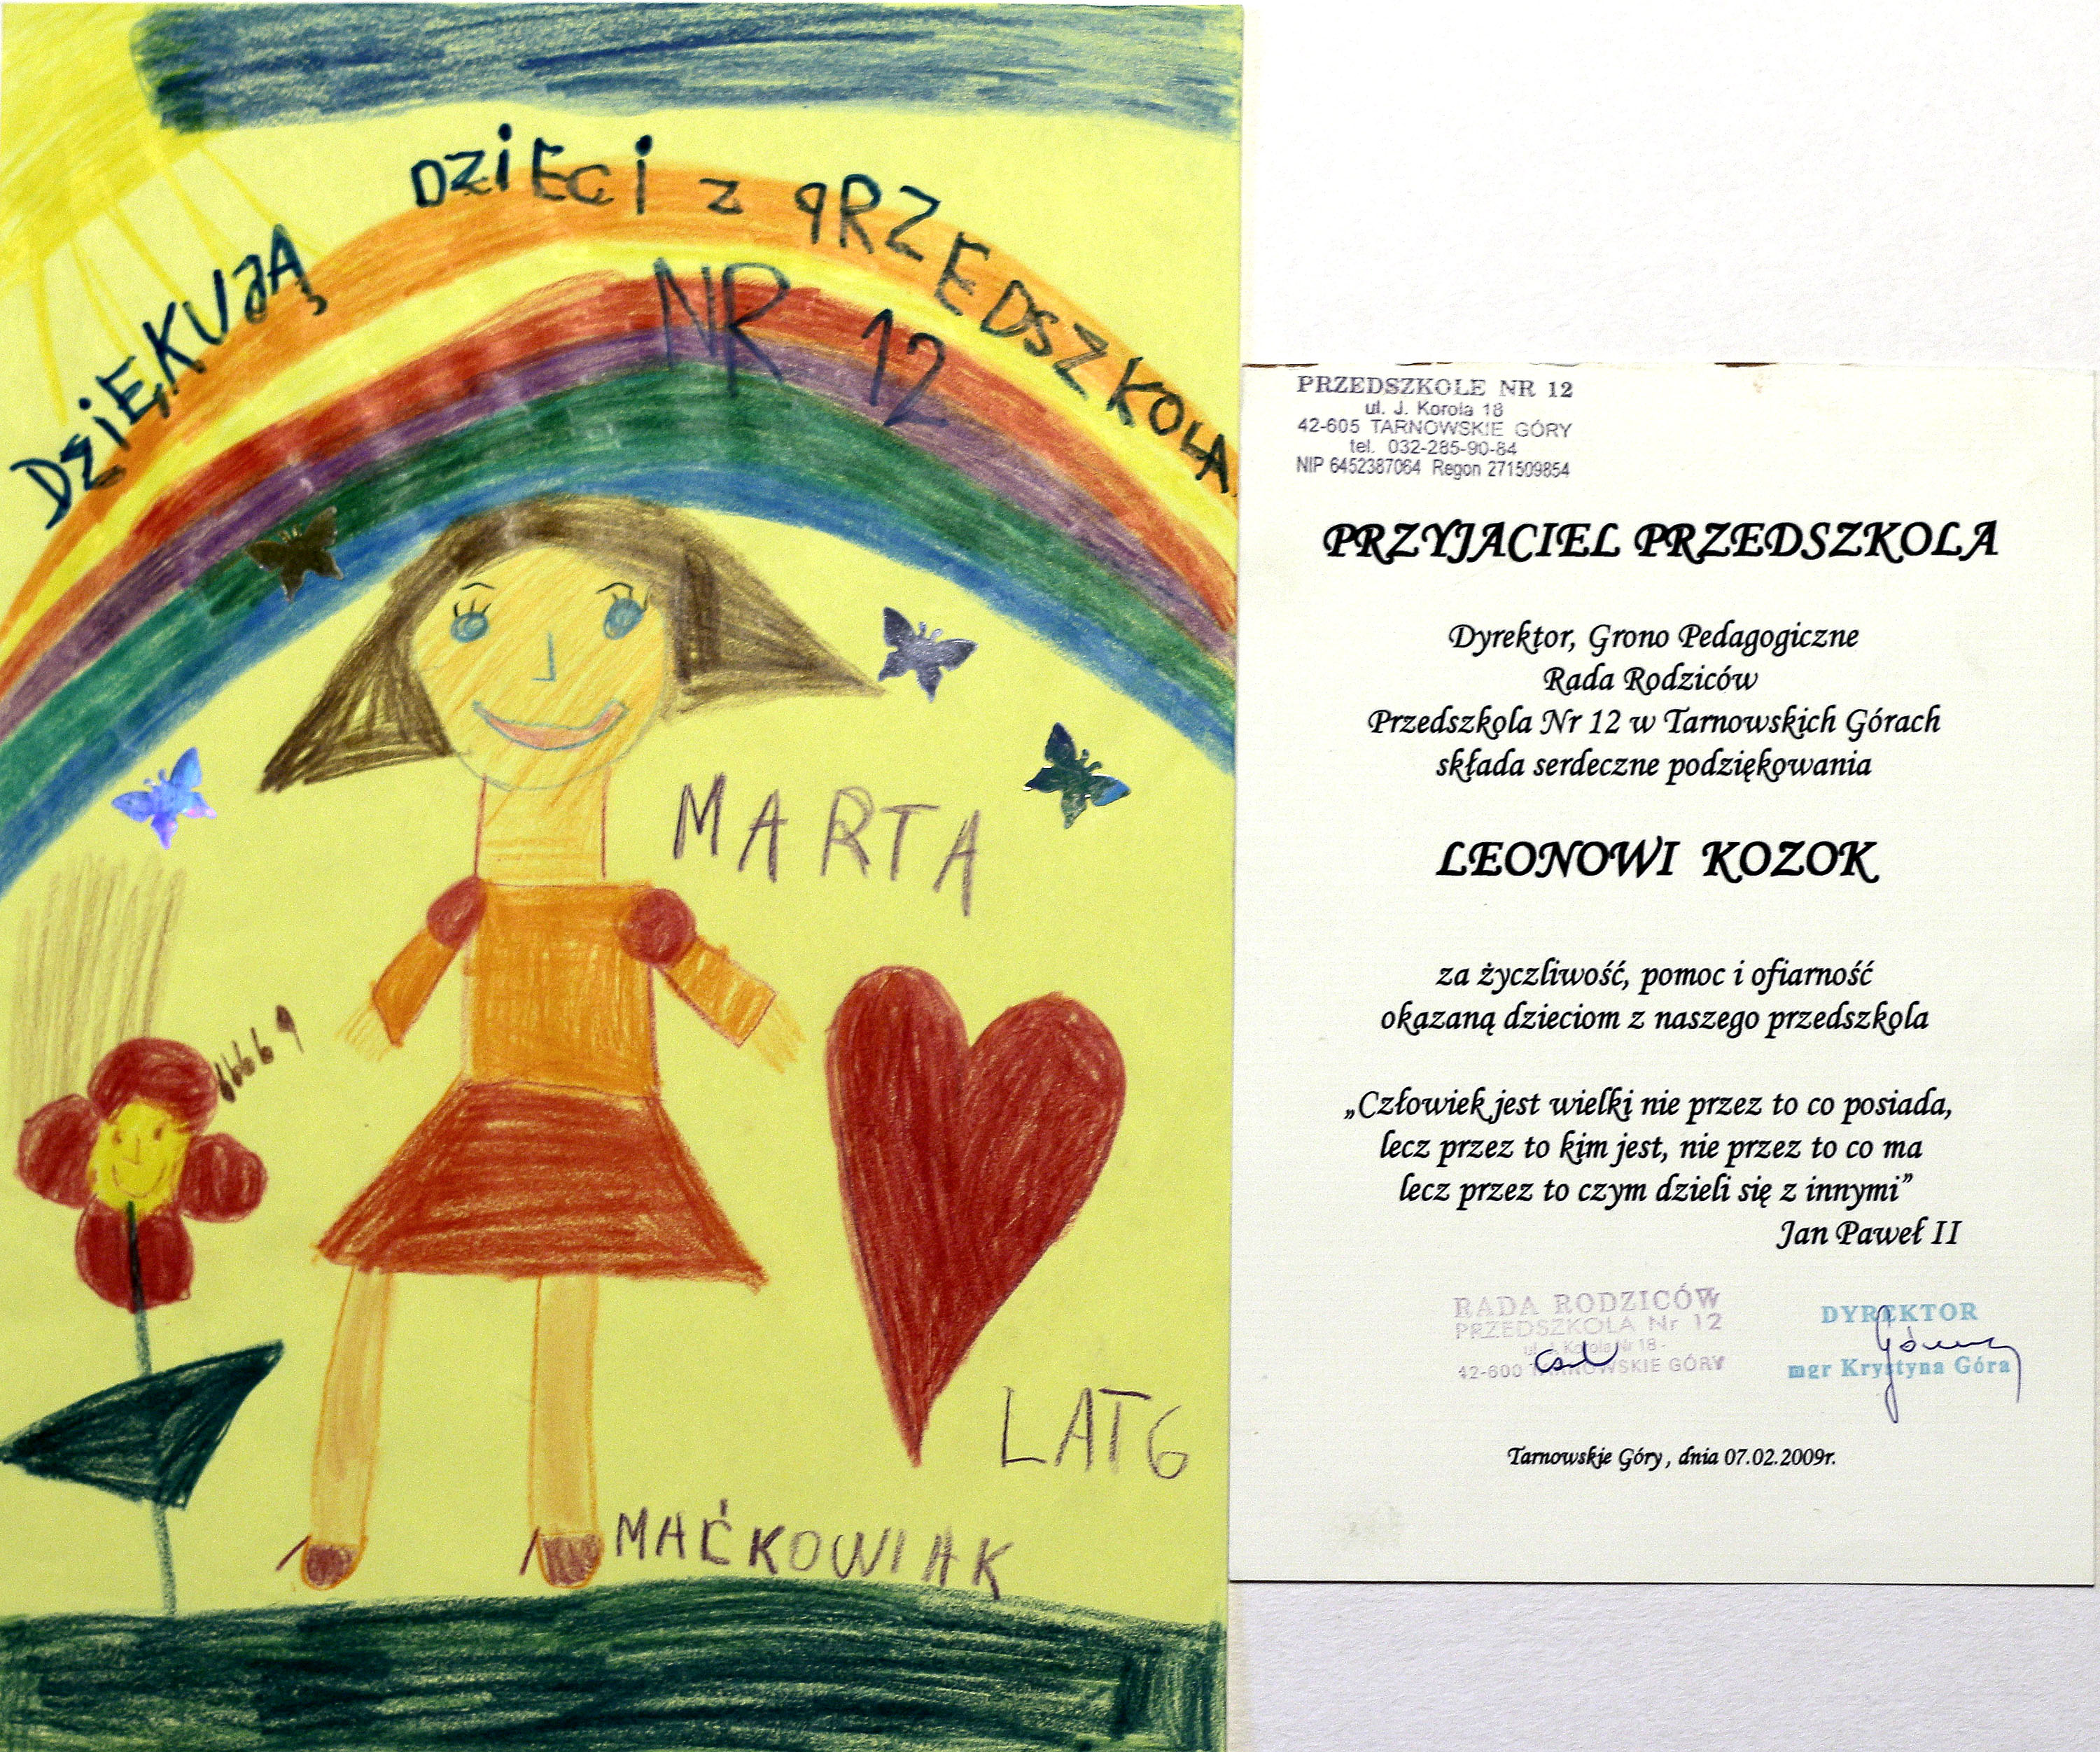 DZIĘKUJĄ DZIECI Z PRZEDSZKOLA
NR 12
MARTA
LAT 6
MAĆKOWIAK
PRZEDSZKOLE NR 12
ul. J. Korola 18
42-605 TARNOWSKIE GÓRY
tel. 032-285-90-84
NIP 6452387064 Regon 271509854
PRZYJACIEL PRZEDSZKOLA
Dyrektor, Grono Pedagogiczne
Rada Rodziców
Przedszkola Nr 12 w Tarnowskich Górach
składa serdeczne podziękowania
LEONOWI KOZOK
za życzliwość, pomoc i ofiarność
okazaną dzieciom z naszego przedszkola
„Człowiek jest wielki nie przez to co posiada,
lecz przez to kim jest, nie przez to co ma
lecz przez to czym dzieli się z innymi”
Jan Paweł II
RADA RODZICÓW
PRZEDSZKOLA Nr 12
ul. J. Korola Nr 18
42-600 TARNOWSKIE GÓRY
DYREKTOR
mgr Krystyna Góra
Tarnowskie Góry, dnia 07.02.2009r.